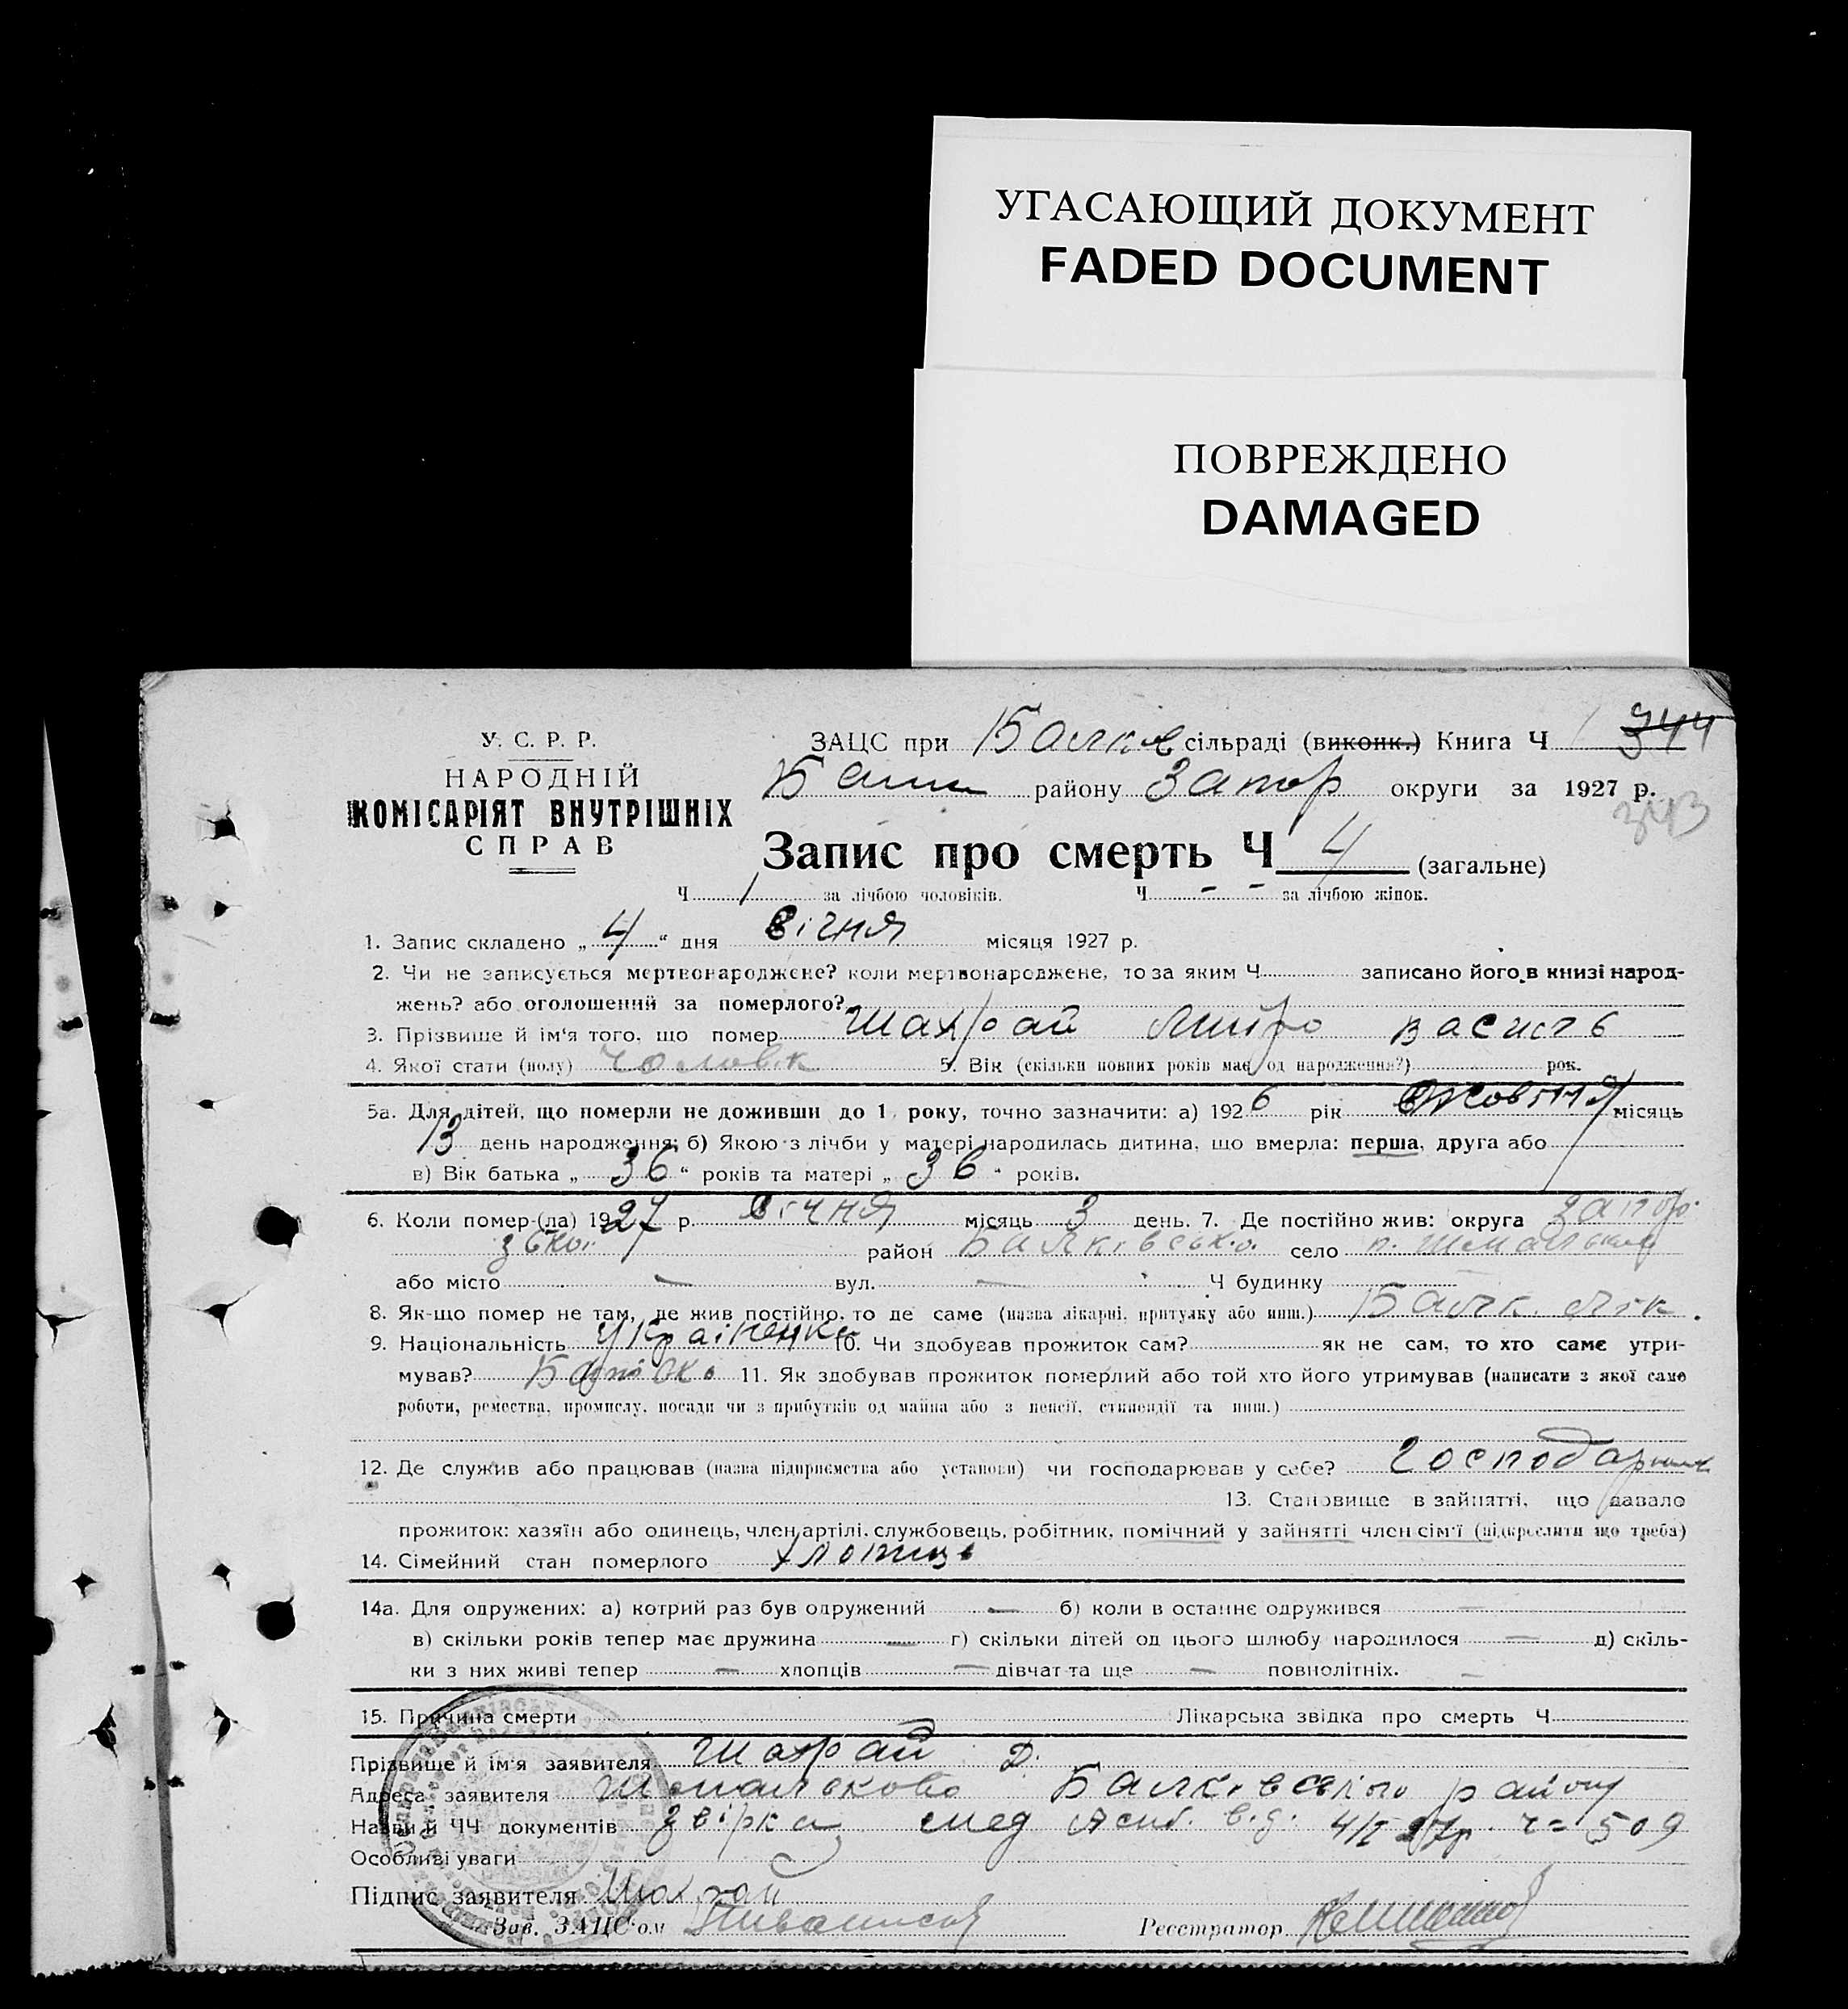 УГАСАЮЩИЙ ДОКУМЕНТ
FADED DOCUMENT
ПОВРЕЖДЕНО
DAMAGED
У. С. Р. Р.
НАРОДНІЙ
КОМІСАРІЯТ ВНУТРІШНІХ
СПРАВ
ЗАЦС при Балків сільраді (виконк.) Книга Ч 344
району Запор округи за 1927 р.
343
Запис про смерть Ч 4 (загальне)
Ч 1 за лічбою чоловіків. Ч - - за лічбою жінок.
1. Запис складено „ 4 “ дня січня місяця 1927 р.
2. Чи не записується мертвонароджене? коли мертвонароджене, то за яким Ч записано його в книзі народ-
жень? або оголошений за померлого?
3. Прізвище й ім'я того, що помер Шахрай Василь
4. Якої стати (полу) чоловік 5. Вік (скільки повних років має од народження?) рок.
5а. Для дітей, що померли не доживши до 1 року, точно зазначити: а) 1926 рік Жовтня місяць
13 день народження; б) Якою з лічби у матері народилась дитина, що вмерла: перша, друга або
в) Вік батька „ 36 “ років та матері „ 36 “ років.
6. Коли помер-(ла) 1927 р. січня місяць 3 день. 7. Де постійно жив: округа Запорі-
зької район Балківсько. село
або місто — вул. — Ч будинку
8. Як-що помер не там, де жив постійно, то де саме (назва лікарні, притулку або инш.) Балк. лік.
9. Національність Українець 10. Чи здобував прожиток сам? як не сам, то хто саме утри-
мував? Батько 11. Як здобував прожиток померлий або той хто його утримував (написати з якої саме
роботи, ремества, промислу, посади чи з прибутків од майна або з пенсії, стипендії та инш.)
12. Де служив або працював (назва підприємства або установи) чи господарював у себе? Господарник
13. Становище в зайнятті, що давало
прожиток: хазяїн або одинець, член артілі, службовець, робітник, помічний у зайнятті член сім'ї (підкреслити що треба)
14. Сімейний стан померлого хлопець
14а. Для одружених: а) котрий раз був одружений — б) коли в останнє одружився —
в) скільки років тепер має дружина — г) скільки дітей од цього шлюбу народилося — д) скіль-
ки з них живі тепер — хлопців — дівчат та ще — повнолітніх. —
15. Причина смерти Лікарська звідка про смерть Ч
Прізвище й ім'я заявителя Шахрай Д.
Адреса заявителя Балківського району
Назви й ЧЧ документів 4/I 27р. ч= 509
Особливі уваги
Підпис заявителя Шахрай
Зав. ЗАЦС'ом
Реєстратор